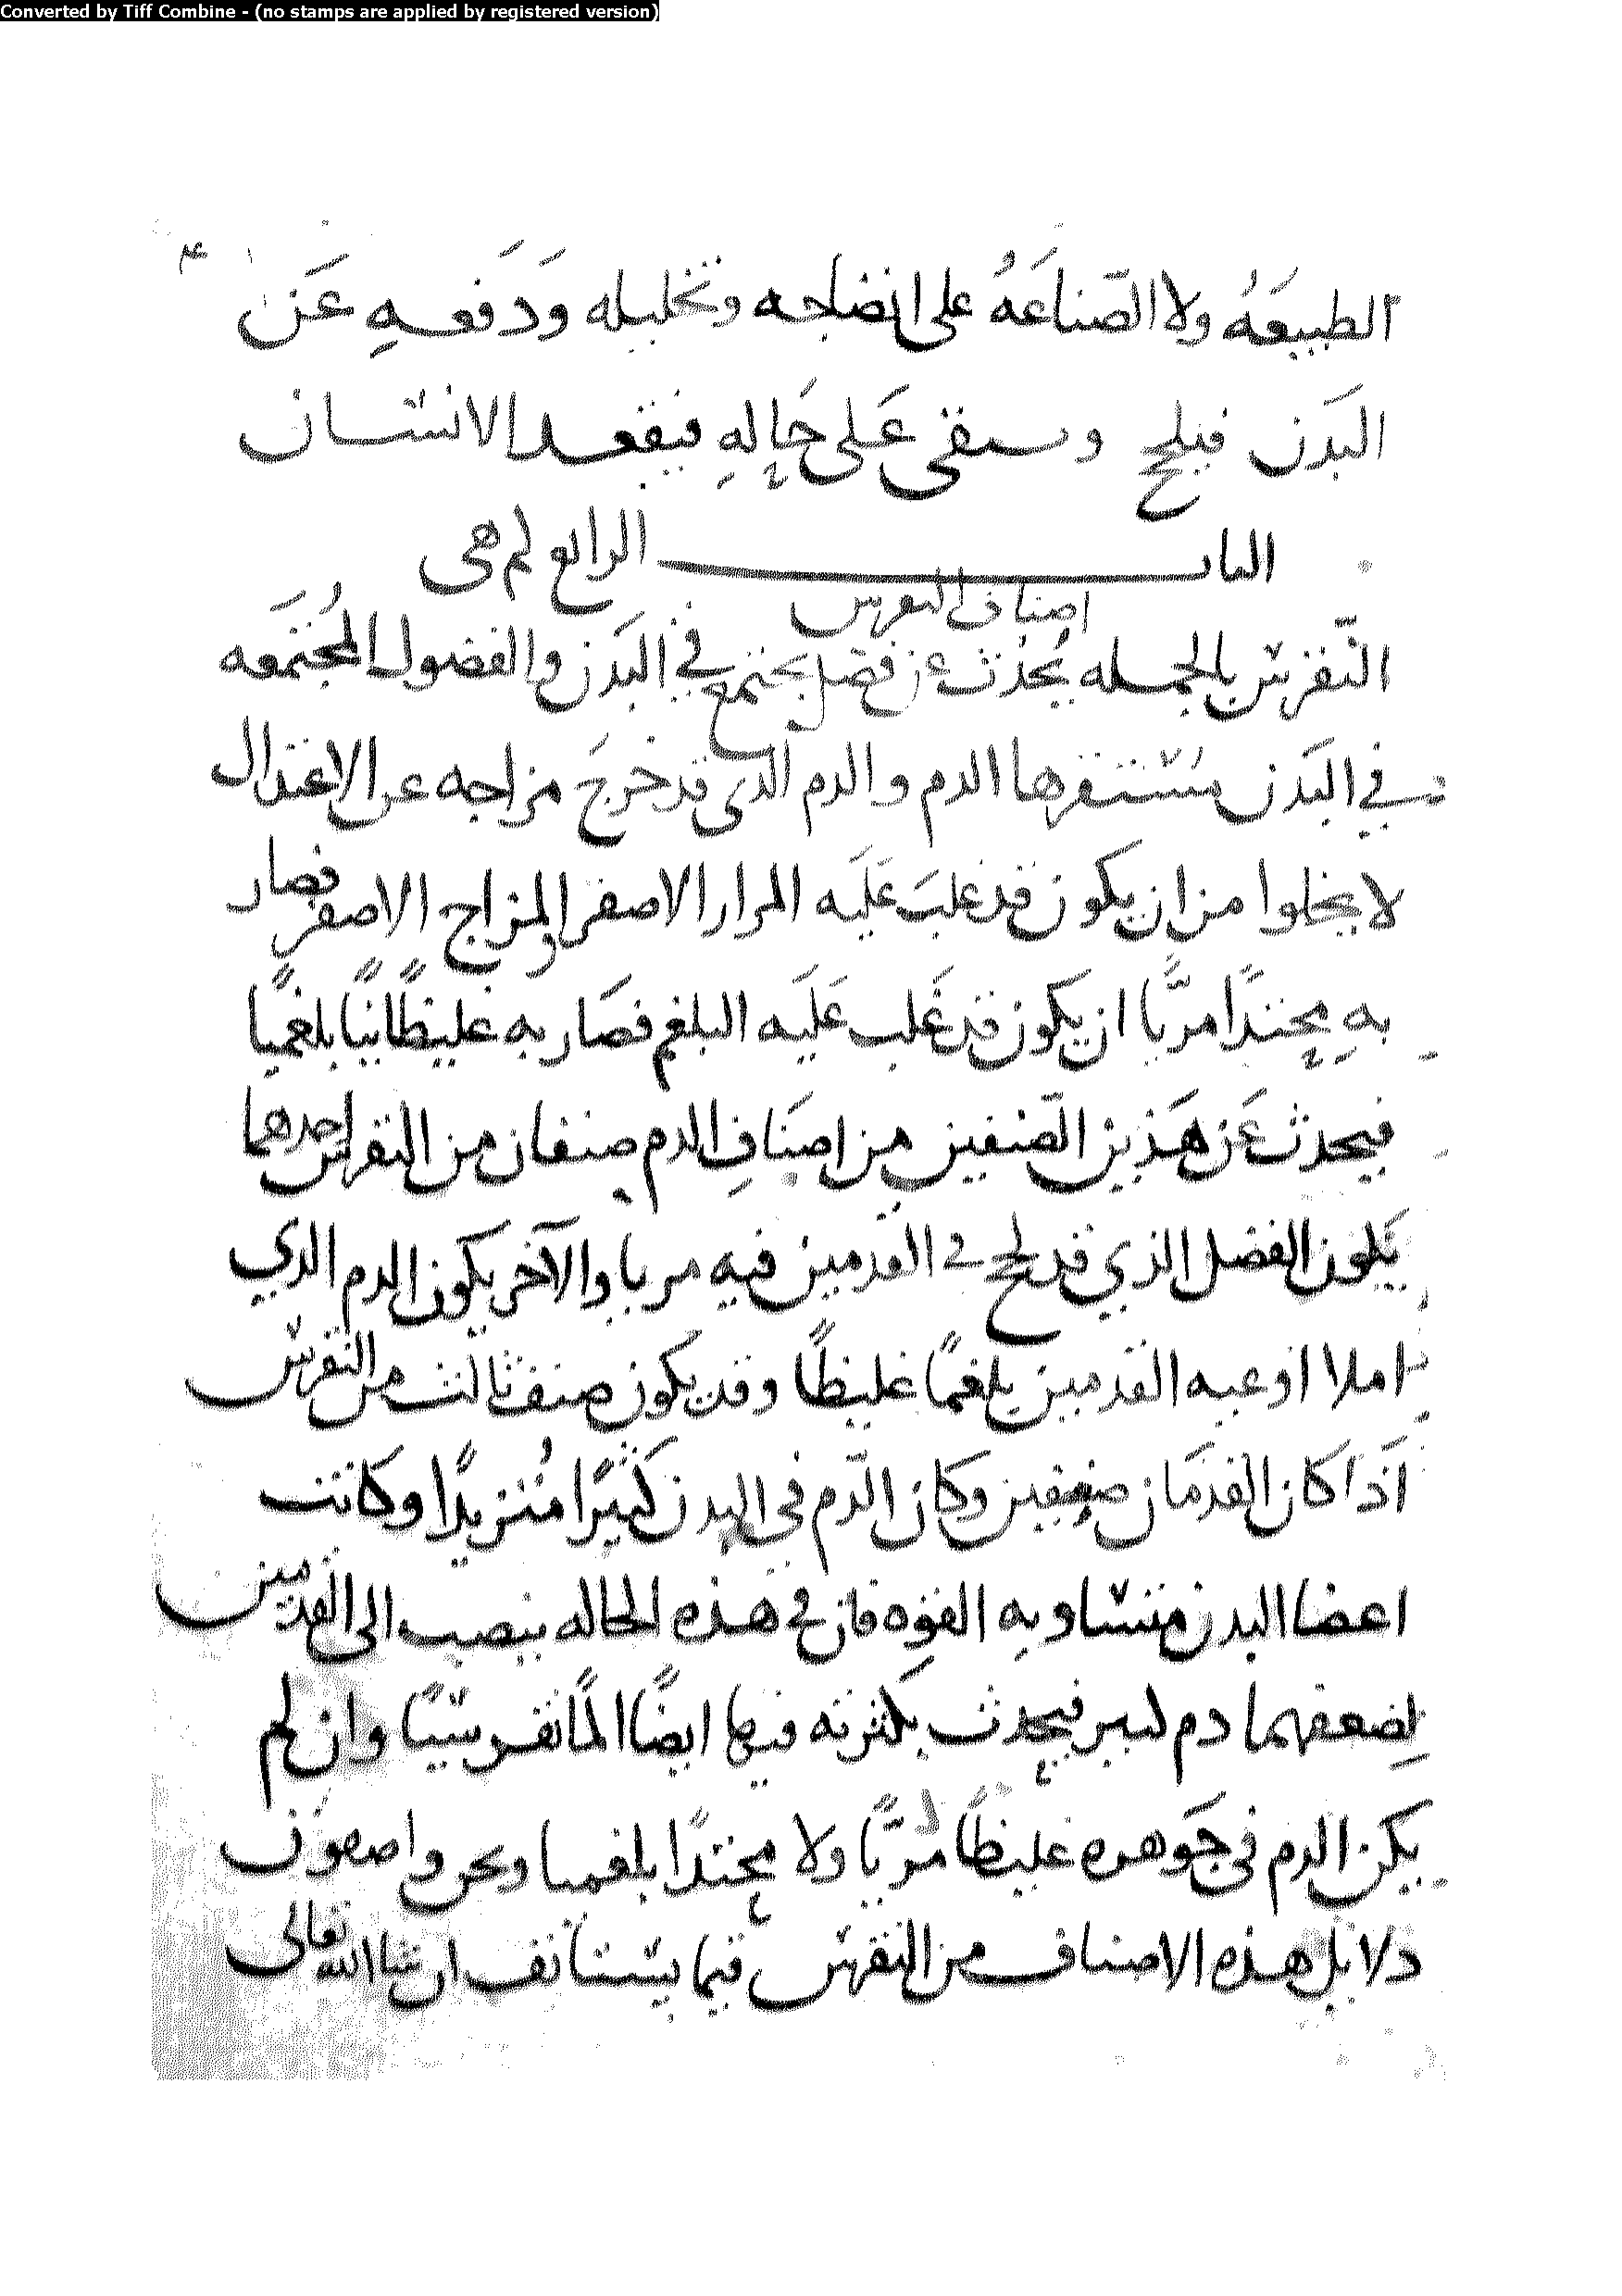 Converted by Tiff Combine - (no stamps are applied by registered version)
الطبيعَهُ ولا الصّناعَهُ على انضاجه وتحليله وَدَفعهِ عَن
البَدَن فيلحج وسقى عَلى حَالِهِ فيقعد الانسان
الباب الرابع لم هى
اصناف النقرس
النّقرس بالجمله يَحُدث عن فضل يجتمع في البَدَن والفضول المُجتمَعه
في البَدَن مُستقرها الدم والدم الذى قد خرجَ مزاجه عن الاعتدال
لا يخلوا من ان يكون قد غلبَ عَلَيه المرار الاصفر والمزاج الاصفر فصار
بهِ محتدًا مرّيا ان يكون قد غَلب عَلَيه البلغم فصَار به غليظًا نيًا بلغميًا
فيحدث عَن هَذين الصّنفين من اصنَافِ الدم صنفان من النقرس احدهما
يَكون الفضل الذي قد لحج فى القدمين فيه مريا والآخر يكون الدم الدي
املا اوعيه القدمين بلغمًا غليظًا وقد يكون صنف ثالث من النقرس
اذَا كان القدمَان ضعيفين وكان الدّم في البدن كَثيرًا مُتزيدًا وكانت
اعضا البدن متساويه القوّه فان فى هذه الحاله ينصب الى القدمين
لِضعفهما دم كبير فيحدث بكثرته فيها ايضًا المًا نقرسيًا وان لم
يكن الدم فى جَوهره غليظًا مُرّيًا ولا محتدًا بلغميا ونحن واصفون
دلايل هذه الاصناف من النقرس فيما يستانف ان شا الله تعالى